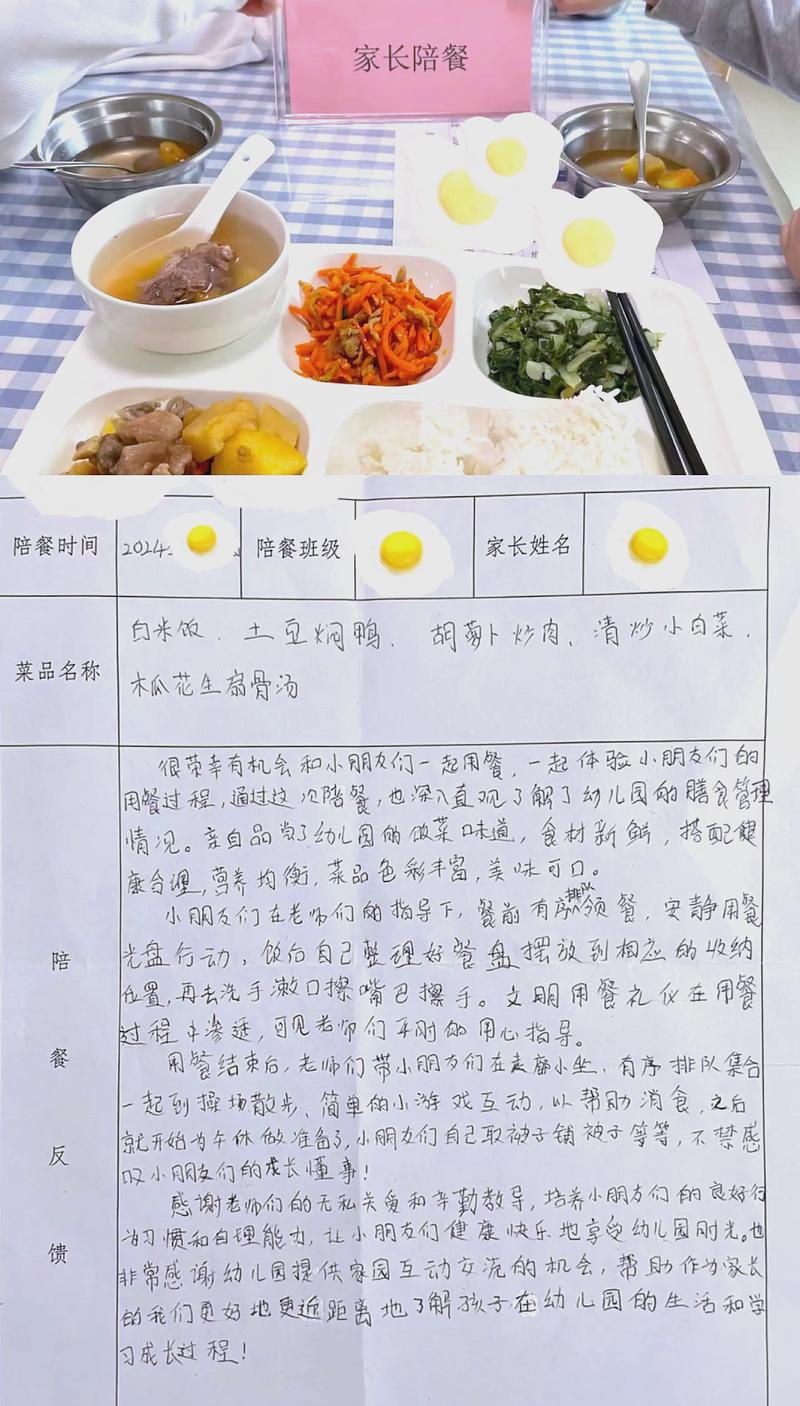 家长陪餐
陪餐时间 2024 陪餐班级 家长姓名
菜品名称
白米饭、土豆焖鸭、胡萝卜炒肉、清炒小白菜、
木瓜花生扇骨汤
陪餐反馈
很荣幸有机会和小朋友们一起用餐,一起体验小朋友们的
用餐过程,通过这次陪餐,也深入直观了解了幼儿园的膳食管理
情况。亲自品尝了幼儿园的做菜味道,食材新鲜,搭配健
康合理,营养均衡,菜品色彩丰富,美味可口。
小朋友们在老师们的指导下,餐前有序排队领餐,安静用餐
光盘行动,饭后自己整理好餐盘摆放到相应的收纳
位置,再去洗手漱口擦嘴巴擦手。文明用餐礼仪在用餐
过程中渗透,可见老师们平时的用心指导。
用餐结束后,老师们带小朋友们在走廊小坐、有序排队集合
一起到操场散步、简单的小游戏互动,以帮助消食,之后
就开始为午休做准备了,小朋友们自己取被子铺被子等等,不禁感
叹小朋友们的成长懂事!
感谢老师们的无私关爱和辛勤教导,培养小朋友们的良好行
为习惯和自理能力,让小朋友们健康快乐地享受幼儿园时光。也
非常感谢幼儿园提供家园互动交流的机会,帮助作为家长
的我们更好地更近距离地了解孩子在幼儿园的生活和学
习成长过程!